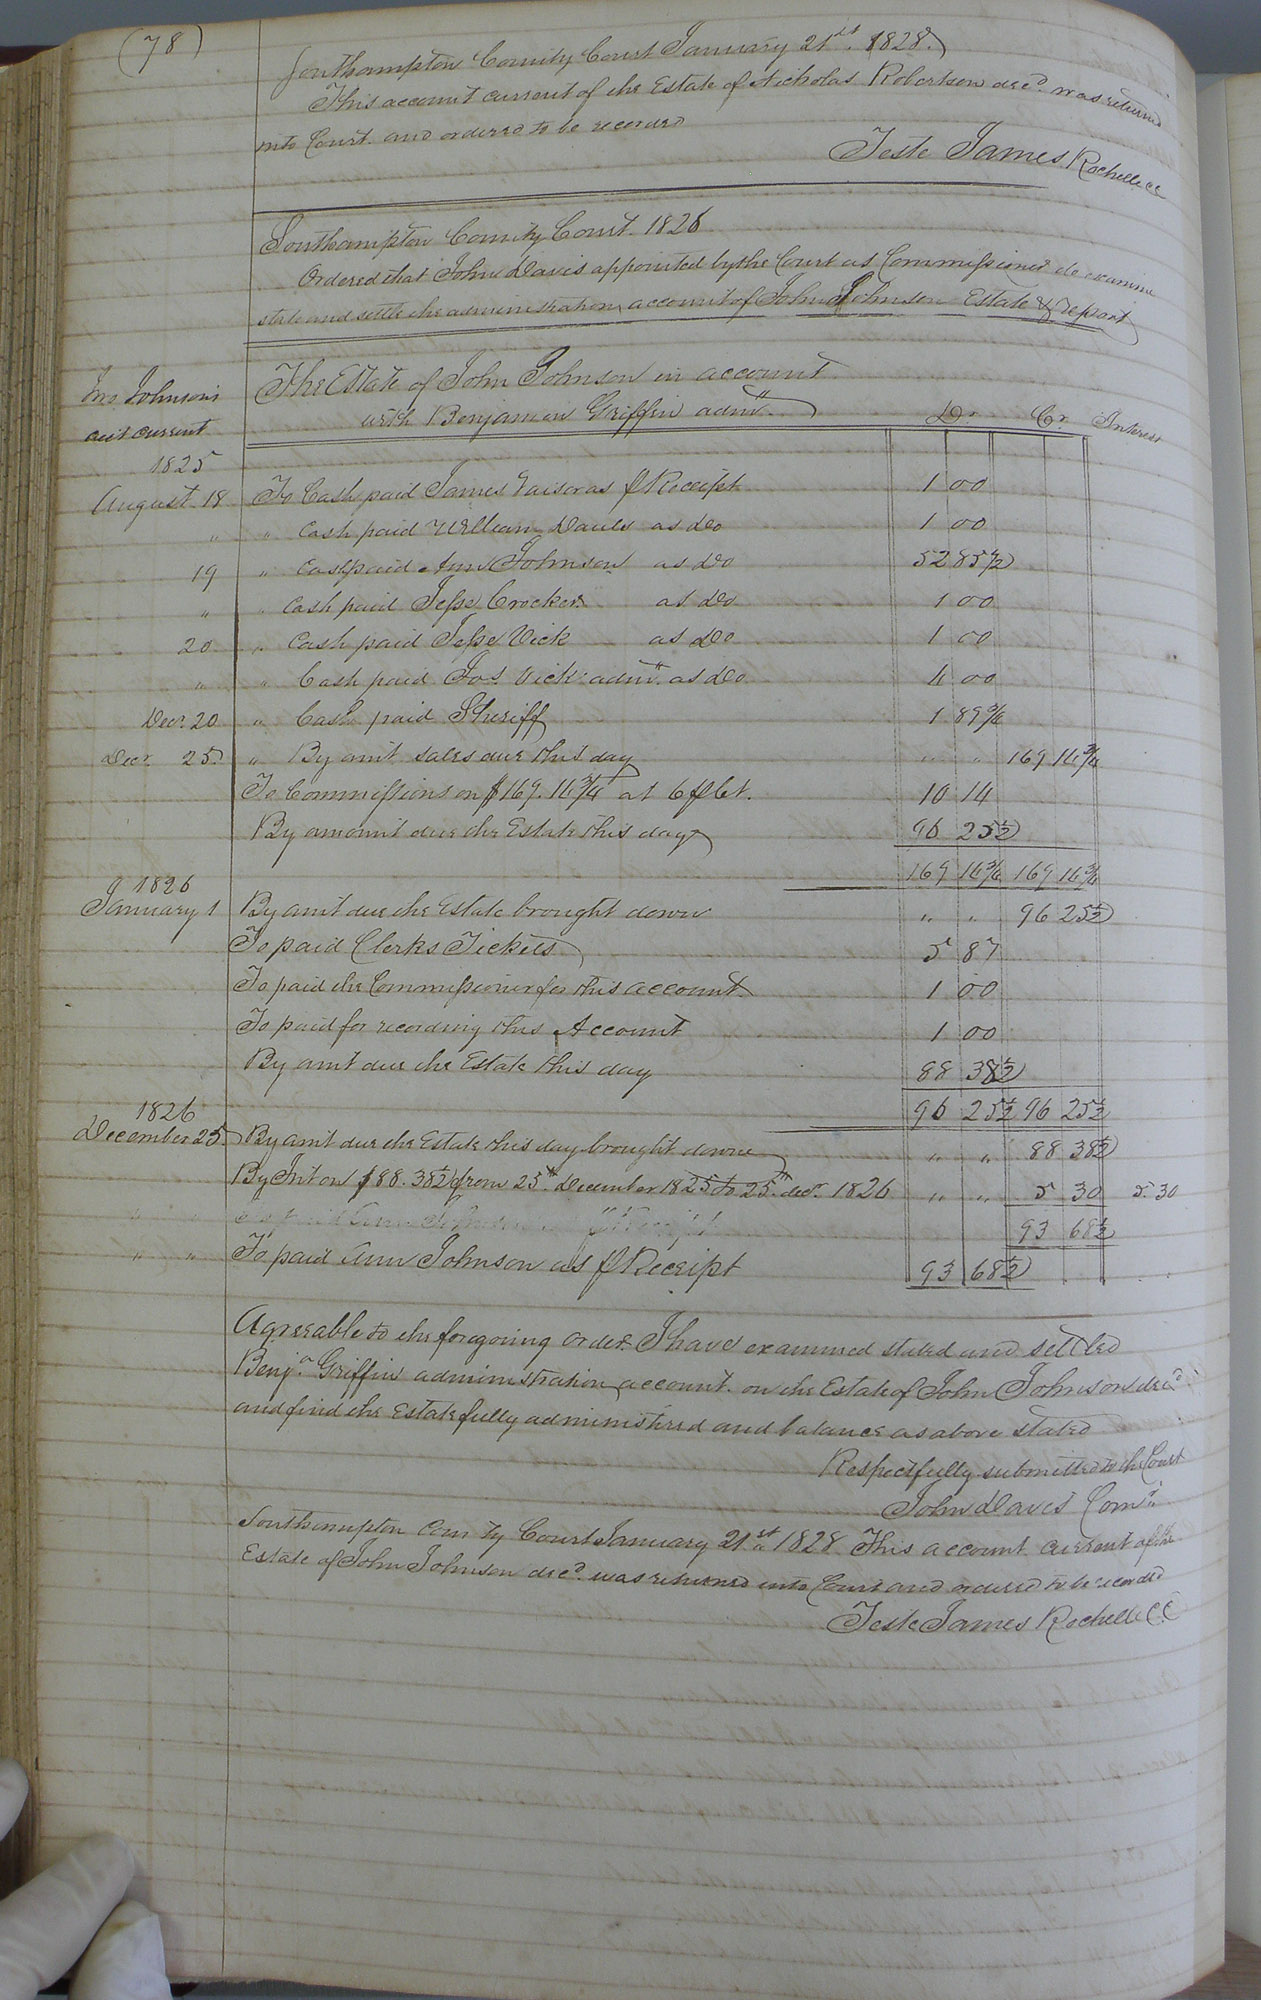 (78)
Southampton County Court January 21st. 1828.
This account current of the Estate of Nicholas Robertson decd was returned
into Court and ordered to be recorded
Teste James Rochelle CC
Southampton County Court 1826
Ordered that John Davis appointed by the Court as Commissioner do examine
state and settle the administration account of John Johnson Estate & report
Jno Johnson's
acct current
The Estate of John Johnson in account
with Benjamin Griffin admr. Dr. Cr. Interest
1825
August 18 To Cash paid James as Receipt 1 00
" " Cash paid William as Do 1 00
19 " Cash paid Ann Johnson as Do 52 85 1/2
" " Cash paid Jesse Crocker as Do 1 00
20 " Cash paid Jesse Vick as Do 1 00
" " Cash paid Jos Vick admr. as Do 4 00
Decr. 20 " Cash paid Sheriff 1 89 3/4
Decr. 25 " By amt sales due this day " " 169 14 3/4
To Commissions on $169.14 3/4 at 6 p Ct. 10 14
By amount due the Estate this day 96 25 1/2
169 14 3/4 169 14 3/4
1826
January 1 By amt due the Estate brought down " " 96 25 1/2
To paid Clerks Tickets 5 87
To paid the Commissioner for this account 1 00
To paid for recording this Account 1 00
By amt due the Estate this day 88 38 1/2
96 25 1/2 96 25 1/2
1826
December 25 By amt due the Estate this day brought down " " 88 38 1/2
By Int on $88.38 1/2 from 25th December 1825 to 25th decr. 1826 " " 5 30 5.30
93 68 1/2
" " To paid Ann Johnson as p Receipt 93 68 1/2
Agreeable to the foregoing order I have examined stated and settled
Benja. Griffin administration account on the Estate of John Johnson decd
and find the Estate fully administered and balance as above stated
Respectfully submitted to the Court
John Davis Comr.
Southampton County Court January 21st 1828 This account current of the
Estate of John Johnson decd. was returned into Court and ordered to be recorded
Teste James Rochelle CC